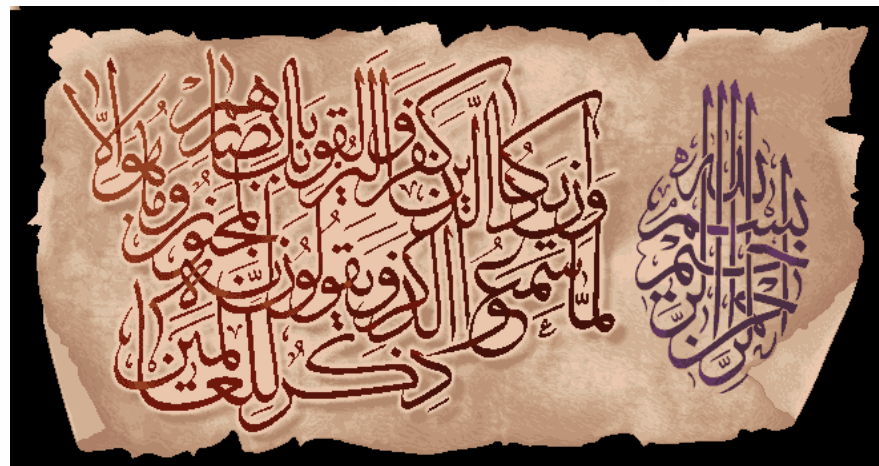 بسم الله الرحمن الرحيم
وإن يكاد الذين كفروا ليزلقونك بأبصارهم
لما سمعوا الذكر ويقولون إنه لمجنون وما هو إلا
ذكر للعالمين